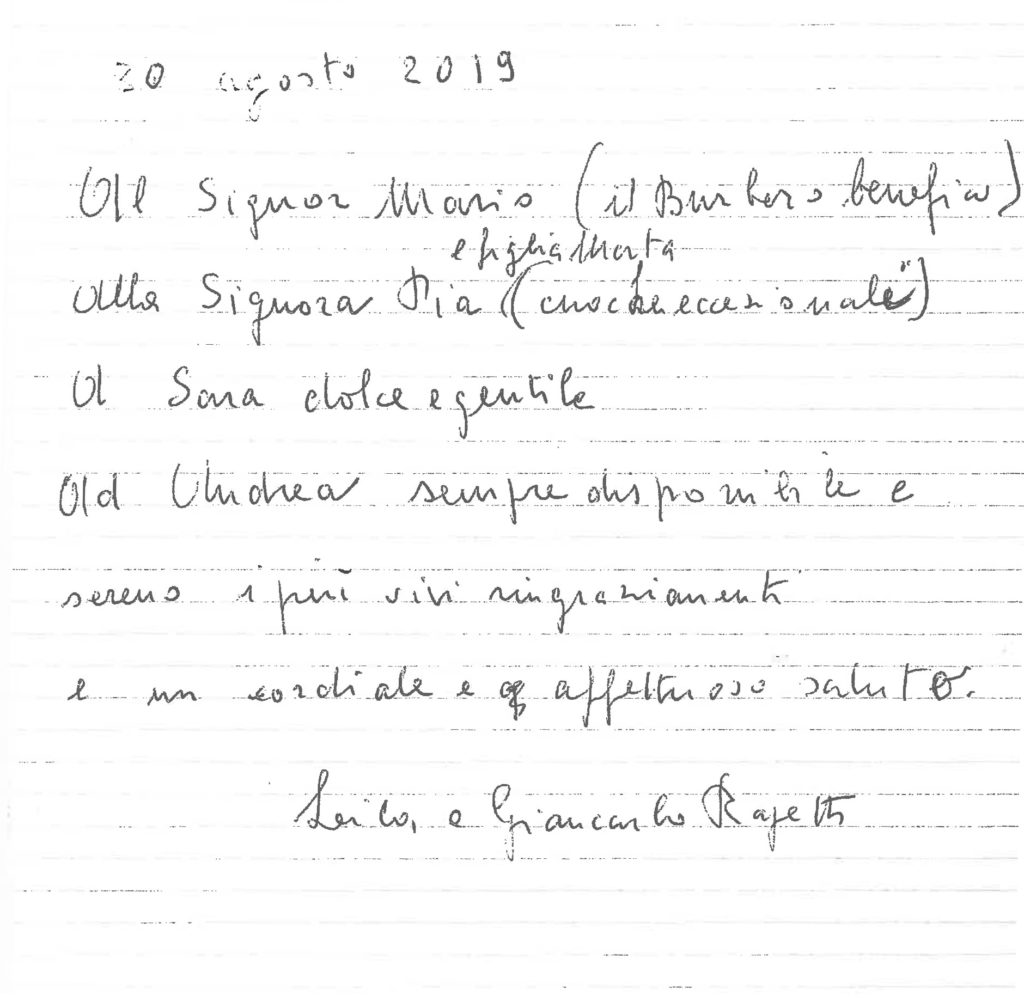 20 agosto 2019
Al Signor Mario (il Burbero benefico)
e figlia Marta
Alla Signora Pia (cuoca eccezionale")
A Sara dolce e gentile
Ad Andrea sempre disponibile e
sereno i più vivi ringraziamenti
e un cordiale e affettuoso saluto.
Leila e Giancarlo